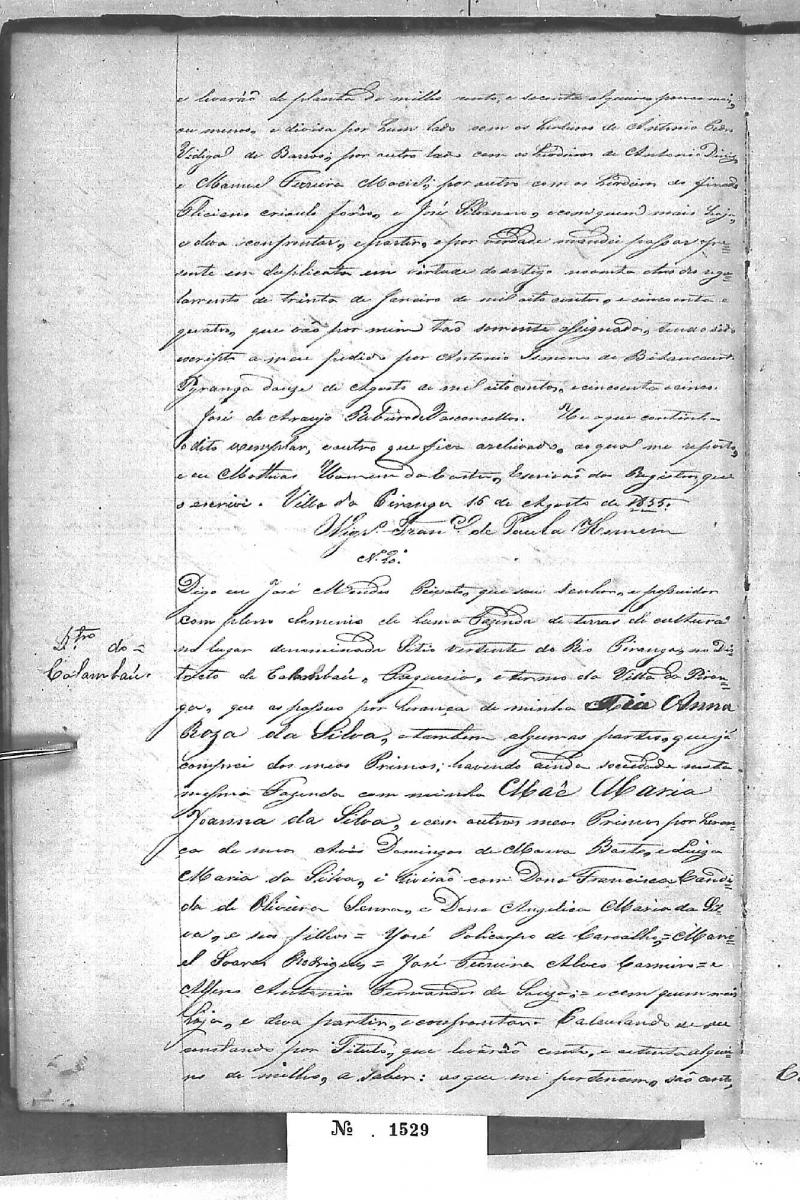 e levarão de planta de milho cento, e secenta alqueires pouco mais,
ou menos, e divisa por hum lado com os herdeiros de Antonio
Vidigal de Barros; por outro lado com os herdeiros de Antonio
e Manuel Ferreira Maciel; por outro com os herdeiros do finado
Feliciano crioulo forro, e José Silvano, e com quem mais haja,
e deva confrontar, e partir, e por verdade mandei passar o pre-
sente em duplicata em virtude do artigo noventa do regu-
lamento de trinta de Janeiro de mil oito centos, e cincoenta e
quatro, que vão por mim tão somente assignado, tendo sido
escripto a meu pedido por Antonio de Bitancourt.
Pyranga doze de Agosto de mil oito centos, e cincoenta e cinco.
José de Araujo Ribeiro de Vasconcellos. He o que continha
o dito exemplar, e outro que fica archivado, ao qual me reporto,
e eu Mathias Homem da Costa, Escrivão dos Registos, que
o escrevi. Villa da Piranga 16 de Agosto de 1855.
Vigr.º Fran.co de Paula Homem
N.º 20.
Digo eu José Mendes Peixoto, que sou Senhor, e possuidor
com pleno dominio de huma Fazenda de terras de cultura
no lugar denominado Sitio vertente do Rio Piranga, no Dis-
tricto de Calambáu, Freguezia, e termo da Villa da Piran-
ga, que as possuo por herança de minha Tia Anna
Roza da Silva, e tambem algumas partes, que já
comprei dos meos Primos; havendo ainda sociedade nesta
mesma Fazenda com minha Maê Maria
Joanna da Silva, e com outros meos Primos por heran-
ça de meos Avós Domingos de Basto, e Luiza
Maria da Silva, e divisão com Dona Francisca Candi-
da de Oliveira Senna, e Dona Angelica Maria da Sil-
va, e seos filhos = José Policarpo de Carvalho, = Mano-
el Soares Rodrigues, = José Ferreira Alves = e
Alferes Antonio Fernandes de Souza; = e com quem mais
haja, e deva partir, e confrontar. Calculando
por Titulo, que levarão cento, e alquei-
res de milho, a saber: as que me pertencem, são cento,
D.tro do =
Calambáu.
Nº . 1529